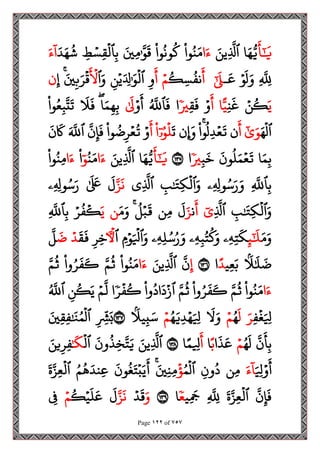 يَٰٓأَيُّهَا ٱلَّذِينَ ءَامَنُوا۟ كُونُوا۟ قَوَّٰمِينَ بِٱلْقِسْطِ شُهَدَآءَ
لِلَّهِ وَلَوْ عَلَىٰٓ أَنفُسِكُمْ أَوِ ٱلْوَٰلِدَيْنِ وَٱلْأَقْرَبِينَ ۚ إِن
يَكُنْ غَنِيًّا أَوْ فَقِيرًا فَٱللَّهُ أَوْلَىٰ بِهِمَا ۖ فَلَا تَتَّبِعُوا۟
ٱلْهَوَىٰٓ أَن تَعْدِلُوا۟ ۚ وَإِن تَلْوُۥٓا۟ أَوْ تُعْرِضُوا۟ فَإِنَّ ٱللَّهَ كَانَ
بِمَا تَعْمَلُونَ خَبِيرًا ١٣٥ يَٰٓأَيُّهَا ٱلَّذِينَ ءَامَنُوٓا۟ ءَامِنُوا۟
بِٱللَّهِ وَرَسُولِهِۦ وَٱلْكِتَٰبِ ٱلَّذِى نَزَّلَ عَلَىٰ رَسُولِهِۦ
وَٱلْكِتَٰبِ ٱلَّذِىٓ أَنزَلَ مِن قَبْلُ ۚ وَمَن يَكْفُرْ بِٱللَّهِ
وَمَلَٰٓئِكَتِهِۦ وَكُتُبِهِۦ وَرُسُلِهِۦ وَٱلْيَوْمِ ٱلْءَاخِرِ فَقَدْ ضَلَّ
ضَلَٰلًۢا بَعِيدًا ١٣٦ إِنَّ ٱلَّذِينَ ءَامَنُوا۟ ثُمَّ كَفَرُوا۟ ثُمَّ
ءَامَنُوا۟ ثُمَّ كَفَرُوا۟ ثُمَّ ٱزْدَادُوا۟ كُفْرًا لَّمْ يَكُنِ ٱللَّهُ
لِيَغْفِرَ لَهُمْ وَلَا لِيَهْدِيَهُمْ سَبِيلًۢا ١٣٧ بَشِّرِ ٱلْمُنَٰفِقِينَ
بِأَنَّ لَهُمْ عَذَابًا أَلِيمًا ١٣٨ ٱلَّذِينَ يَتَّخِذُونَ ٱلْكَٰفِرِينَ
أَوْلِيَآءَ مِن دُونِ ٱلْمُؤْمِنِينَ ۚ أَيَبْتَغُونَ عِندَهُمُ ٱلْعِزَّةَ
فَإِنَّ ٱلْعِزَّةَ لِلَّهِ جَمِيعًا ١٣٩ وَقَدْ نَزَّلَ عَلَيْكُمْ فِى
Page ١٢٢ of ٧٥٧